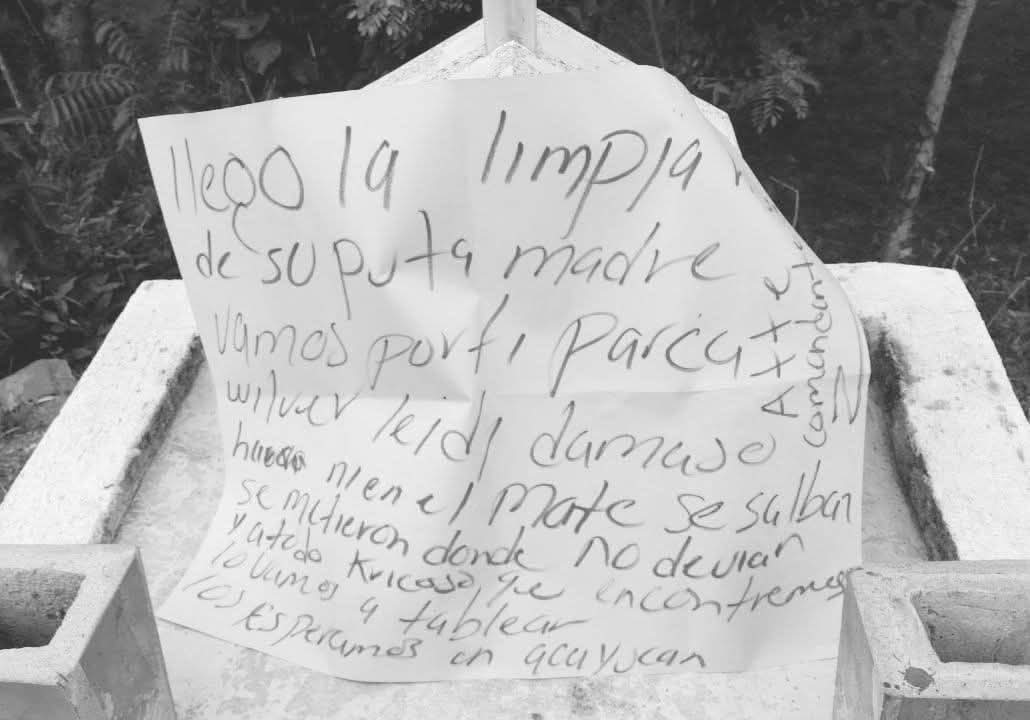 llego la limpia
de su puta madre
vamos por ti parca
wilver leidi damaso
ni en el Mate se salban
se mitieron donde no devian
y a todo kricoso que encontremos
lo vamos a tablear
los Esperamos en acayucan
Atte
comandante
N